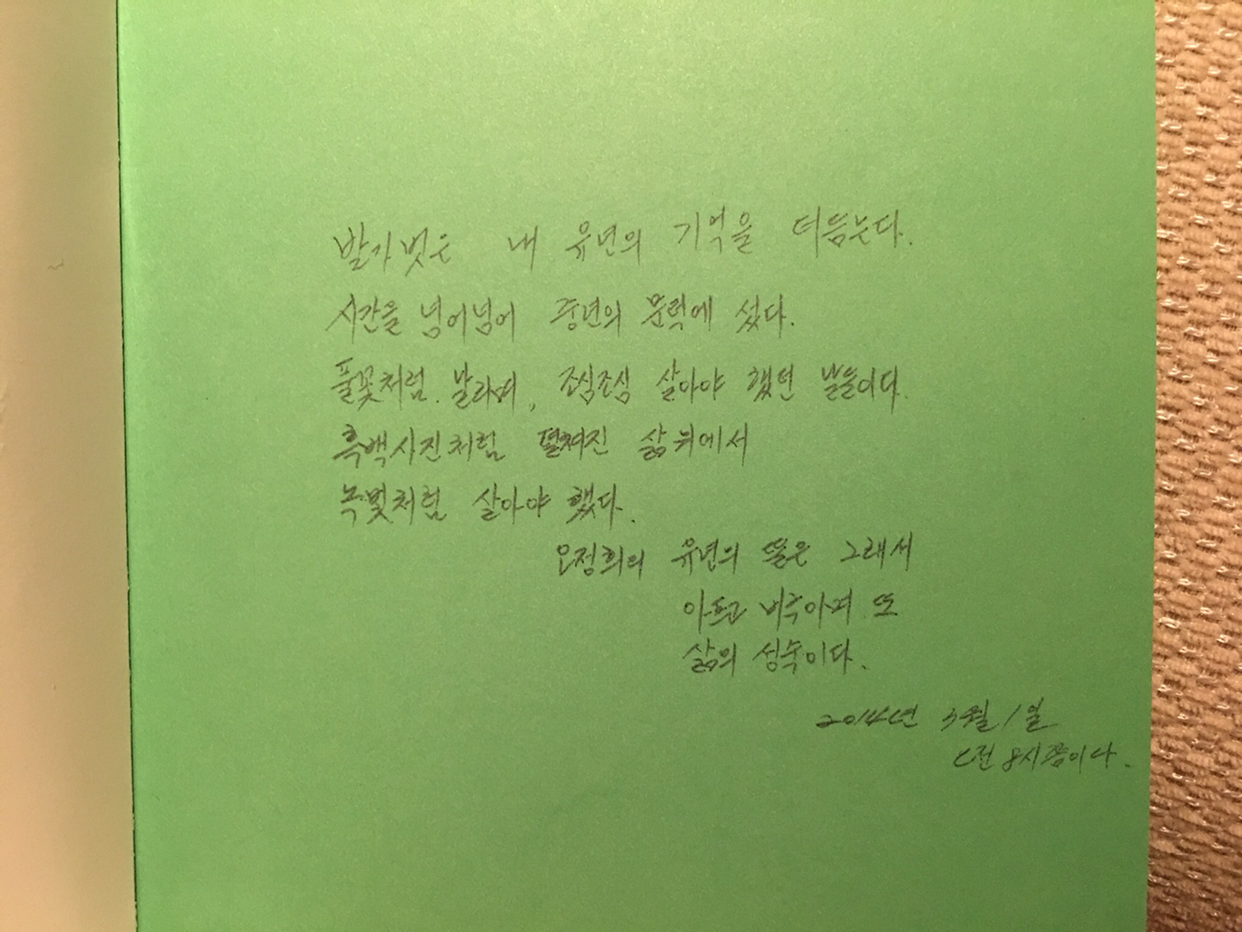 발가벗은 내 유년의 기억을 더듬는다.
시간을 넘어넘어 중년의 문턱에 섰다.
풀꽃처럼 날리며, 조심조심 살아야 했던 날들이다.
흑백사진처럼 펼쳐진 삶 위에서
녹빛처럼 살아야 했다.
오정희의 유년의 뜰은 그래서
아프고 비극이며 또
삶의 성숙이다.
2014년 3월 1일
오전 8시쯤이다.